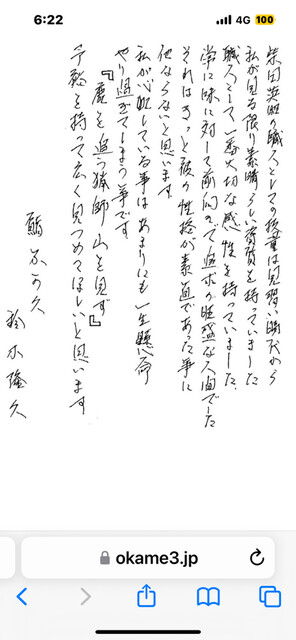 6:22
4G
100
柴田英昭の職人としての技量は見習い時代から
私が見る限り素晴らしい資質を持っていました
職人として一番大切な感性を持っていました
常に味に対して前向きで追求心旺盛な人間でした
それはきっと彼の性格が素直であった事に
他ならないと思います
私が心配している事はあまりにも一生懸命
やり過ぎてしまう事です
『鹿を追う猟師山を見ず』
余裕を持って広く見つめてほしいと思います
鮨 不可久
鈴木隆久
okame3.jp